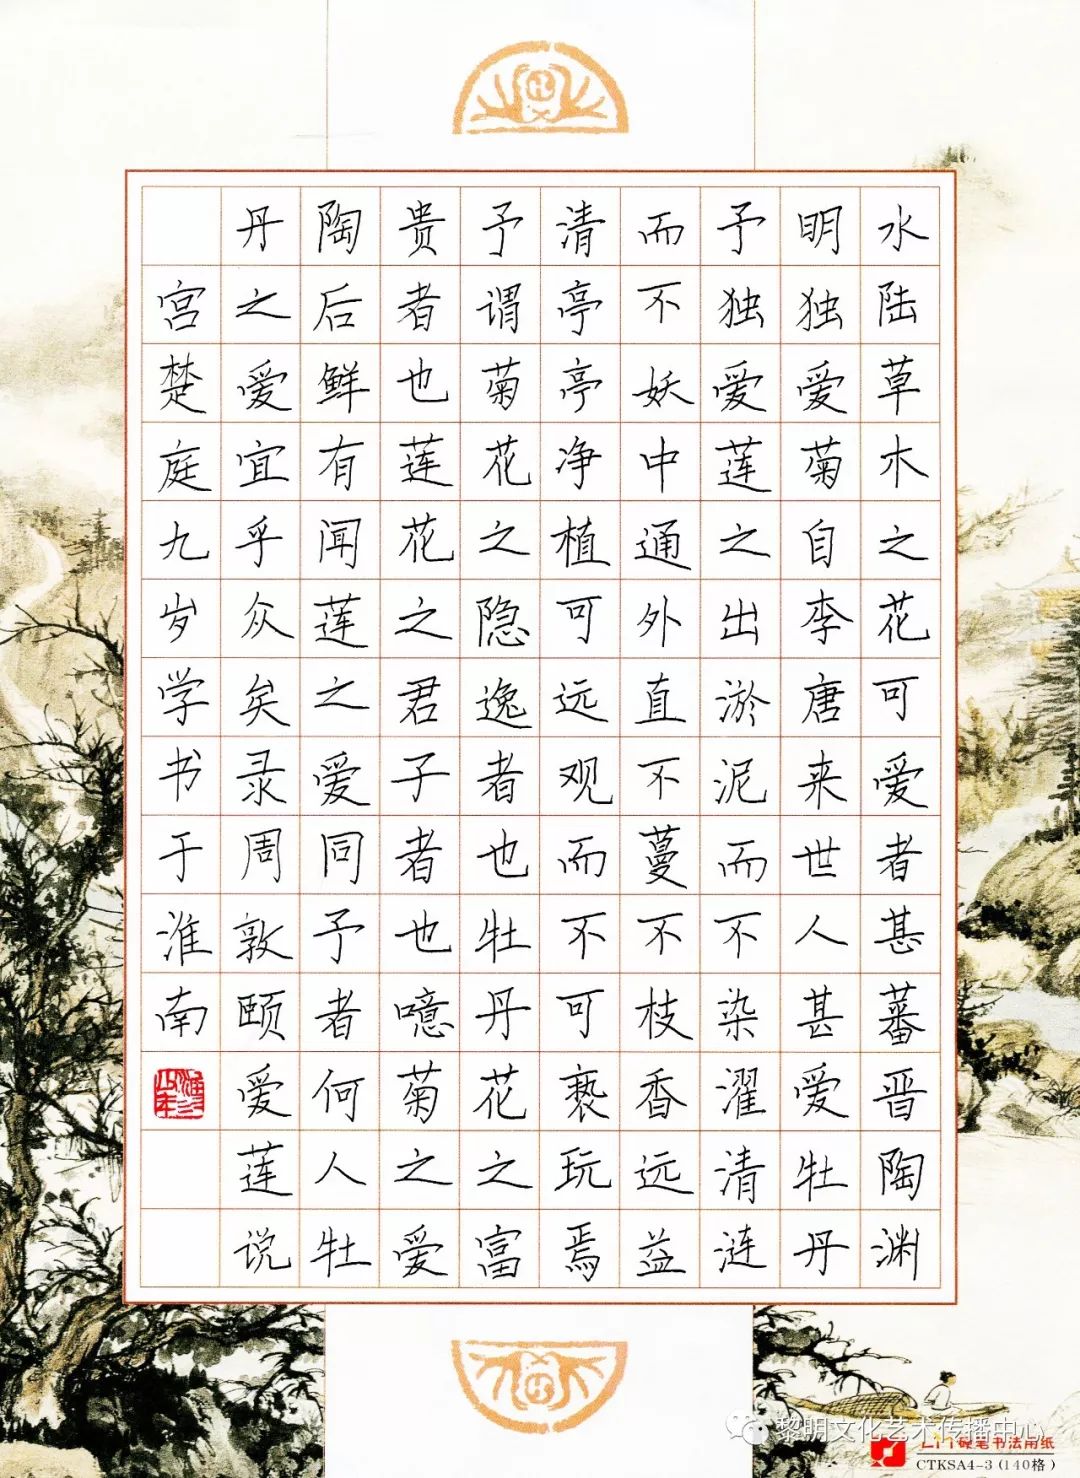 水陆草木之花可爱者甚蕃晋陶渊
明独爱菊自李唐来世人甚爱牡丹
予独爱莲之出淤泥而不染濯清涟
而不妖中通外直不蔓不枝香远益
清亭亭净植可远观而不可亵玩焉
予谓菊花之隐逸者也牡丹花之富
贵者也莲花之君子者也噫菊之爱
陶后鲜有闻莲之爱同予者何人牡
丹之爱宜乎众矣录周敦颐爱莲说
宫楚庭九岁学书于淮南
黎明文化艺术传播中心
硬笔书法用纸
CTKSA4-3(140格)